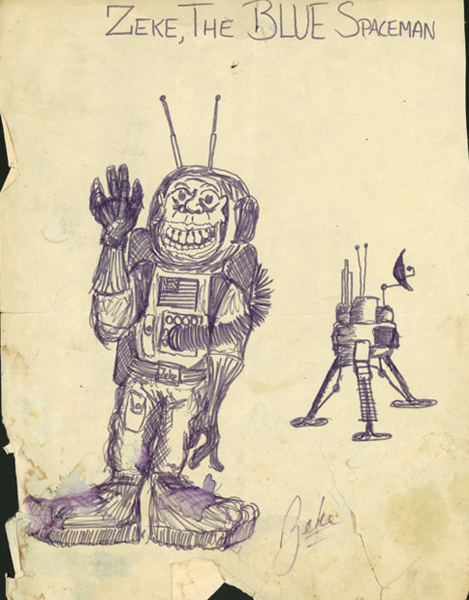 ZEKE, THE BLUE SPACEMAN
Zeke